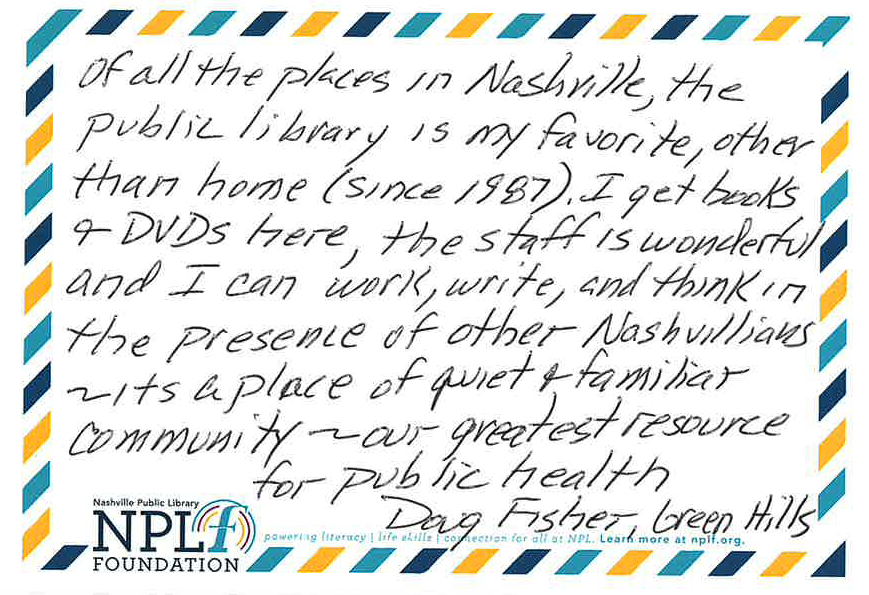 Of all the places in Nashville, the
public library is my favorite, other
than home (since 1987). I get books
& DVDs here, the staff is wonderful
and I can work, write, and think in
the presence of other Nashvillians
~its a place of quiet & familiar
community ~ our greatest resource
for public health
Doug Fisher, Green Hills
Nashville Public Library
NPLf
FOUNDATION
powering literacy | life skills | connection for all at NPL. Learn more at nplf.org.